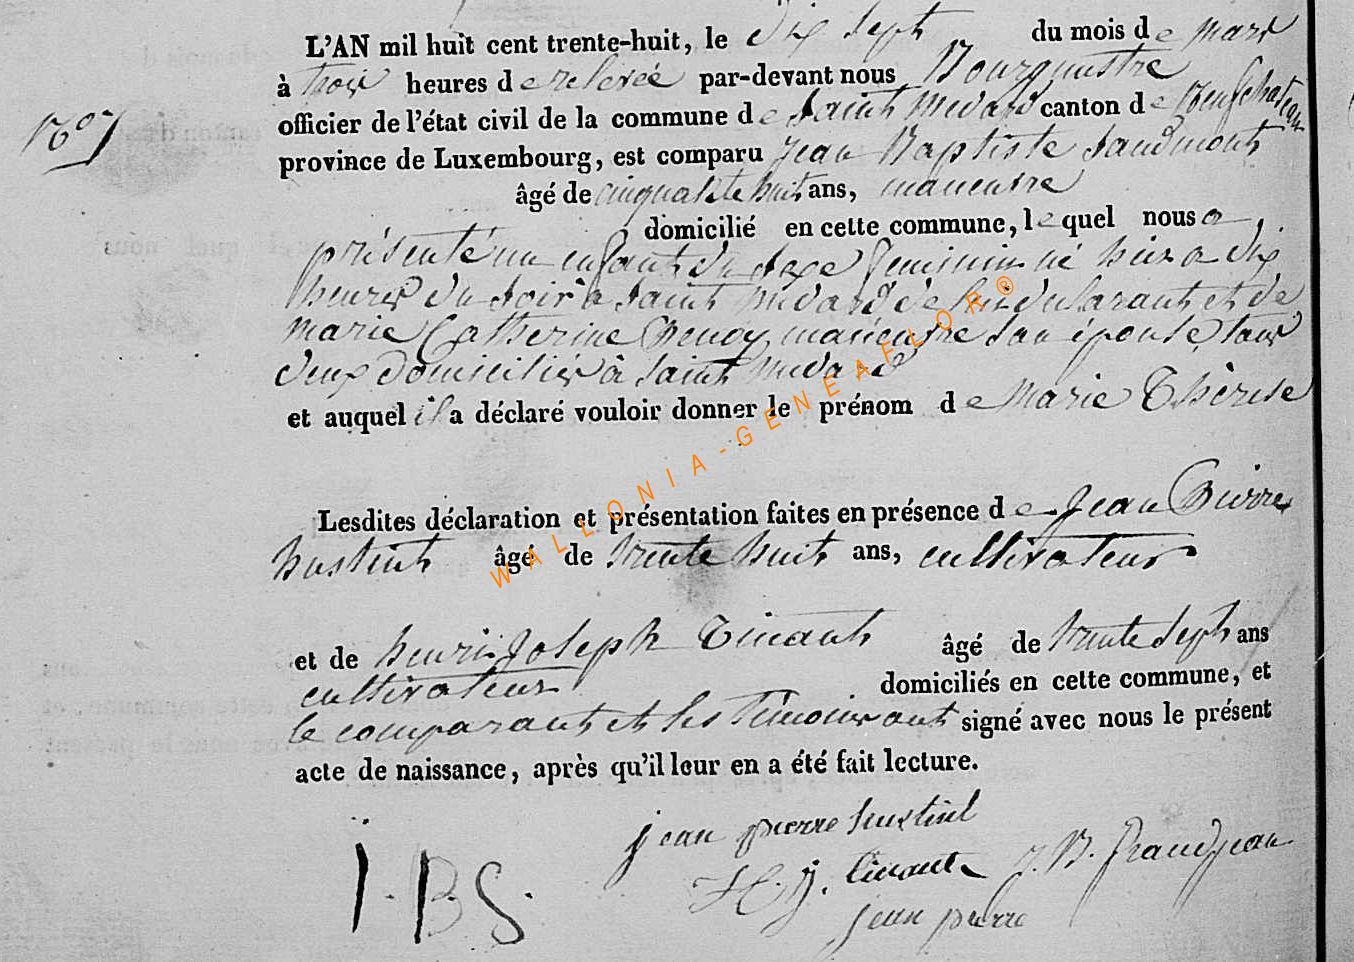 N° 7
L'AN mil huit cent trente-huit, le dix sept du mois de mars
à trois heures de relevée par-devant nous Bourgmestre
officier de l'état civil de la commune de Saint Médard canton de Neufchateau
province de Luxembourg, est comparu Jean Baptiste
âgé de cinquante huit ans, maneuvre
domicilié en cette commune, lequel nous a
présenté un enfant du sexe feminin né hier a dix
heures du soir a Saint Médard de lui déclarant et de
marie Catherine maneuvre son épouse, tous
deux domiciliés à Saint Médard
et auquel il a déclaré vouloir donner le prénom de Marie Thérèse
Lesdites déclaration et présentation faites en présence de Jean Pierre
hustint âgé de trente huit ans, cultivateur
et de henri Joseph Tinant âgé de trente sept ans
cultivateur domiciliés en cette commune, et
le comparant et les témoins ont signé avec nous le présent
acte de naissance, après qu'il leur en a été fait lecture.
jean pierre hustint
H. J. tinant J. B. Grandjean
J. B S. jean pierre
WALLONIA-GENEAFLOR®